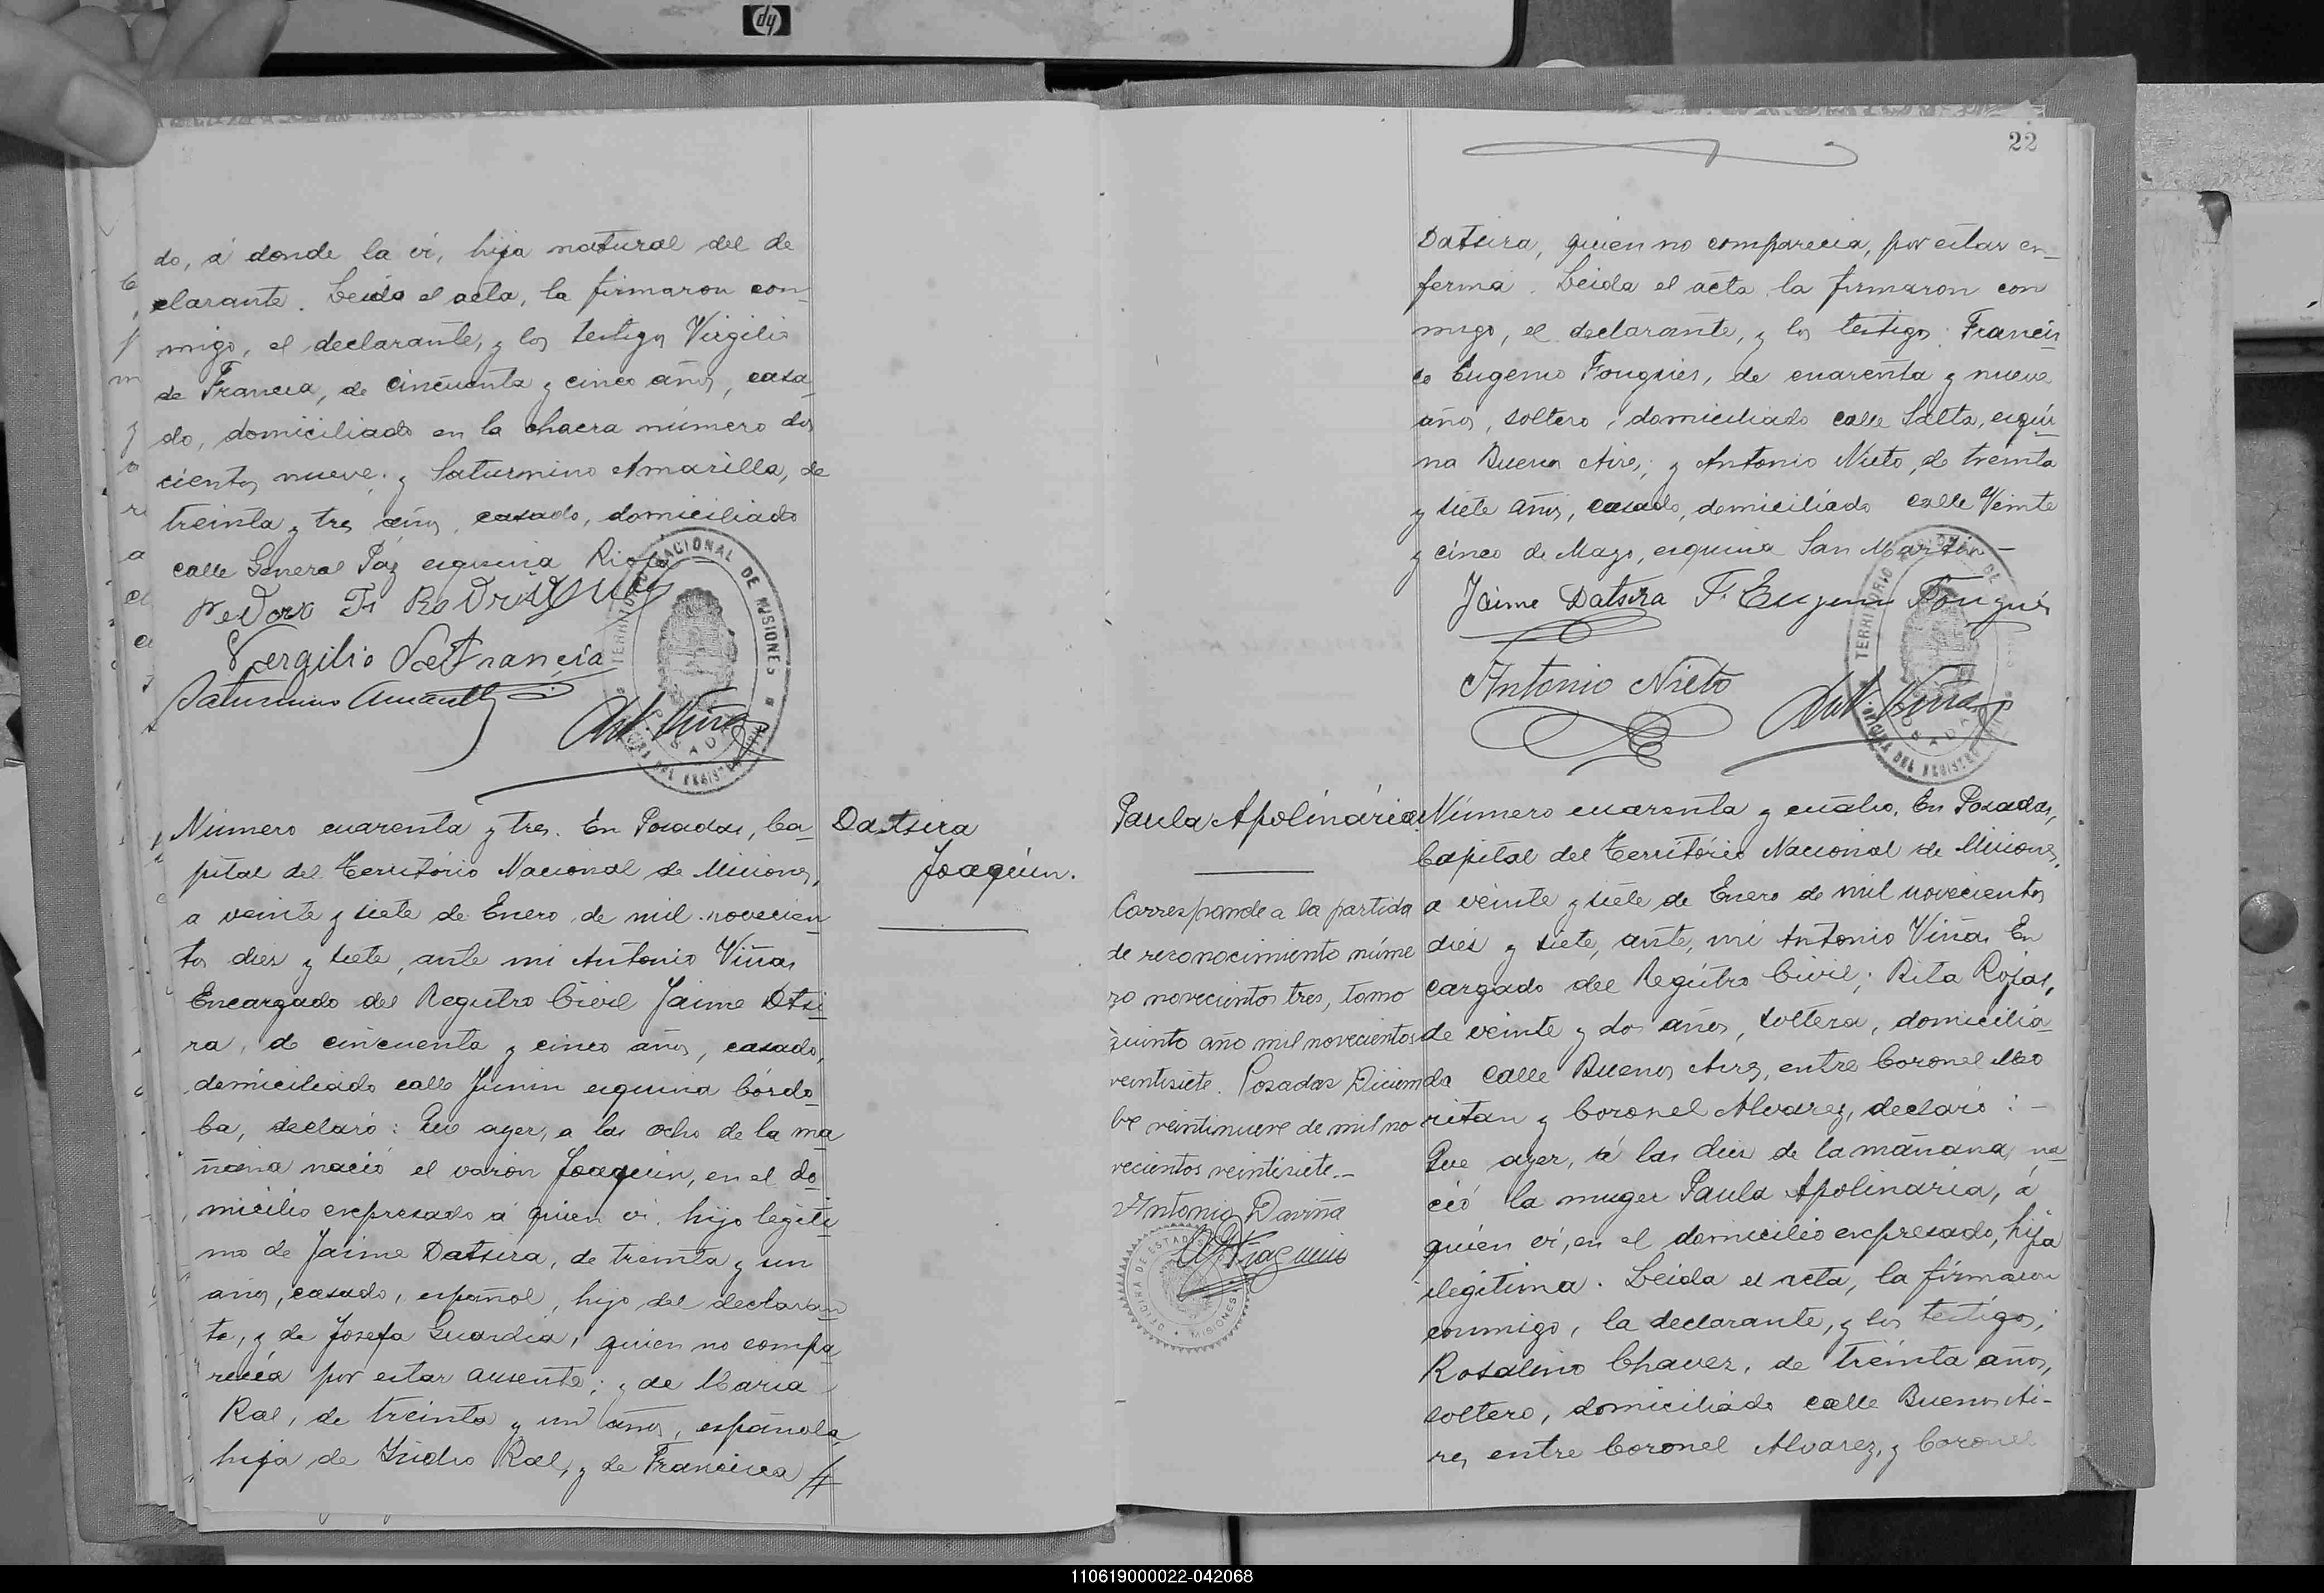 hp
do, á donde la ví, hija natural del de
clarante. Leída el acta, la firmaron con
migo, el declarante, y los testigos Virgilio
de Francia, de cincuenta y cinco años, casa
do, domiciliado en la chacra número dos
cientos nueve; y Saturnino Amarilla, de
treinta y tres años, casado, domiciliado
calle General Paz esquina Rioja
Pedro Fs Rodriguez
Vergilio de Francia
Saturnino Amarilla
Ant. Viñas
TERRITORIO NACIONAL DE MISIONES
OFICINA DEL REGISTRO CIVIL
POSADAS
Número cuarenta y tres. En Posadas, Ca
pital del Territorio Nacional de Misiones,
a veinte y siete de Enero de mil novecien
tos diez y siete, ante mi Antonio Viñas
Encargado del Registro Civil Jaime Dtsi
ra, de cincuenta y cinco años, casado,
domiciliado calle Junin esquina Córdo
ba, declaró: Que ayer, a las ocho de la ma
ñana nació el varón Joaquin, en el do
micilio expresado á quien ví, hijo legíti
mo de Jaime Datsira, de treinta y un
años, casado, español, hijo del declaran
te, y de Josefa Guardia, quien no compa
recía por estar ausente; y de Maria
Ral, de treinta y un años, española
hija de Isidro Ral, y de Francisca //
Datsira
Joaquin.
22
Datsira, quien no comparecia, por estar en
ferma. Leída el acta la firmaron con
migo, el declarante, y los testigos: Francis
co Eugenio Fouguies, de cuarenta y nueve
años, soltero, domiciliado calle Salta, esqui
na Buenos Aires; y Antonio Nieto, de treinta
y siete años, casado, domiciliado calle Veinte
y cinco de Mayo, esquina San Martin —
Jaime Datsira F. Eugenio Fougués
Antonio Nieto
Ant. Viñas
TERRITORIO NACIONAL DE MISIONES
OFICINA DEL REGISTRO CIVIL
POSADAS
Paula Apolinária
Corresponde a la partida
de reconocimiento núme
ro novecientos tres, tomo
quinto año mil novecientos
veintisiete. Posadas Diciem
bre veintinueve de mil no
vecientos veintisiete.—
Antonio Daviña
OFICINA DE ESTADIS
MISIONES
Número cuarenta y cuatro. En Posadas,
Capital del Territorio Nacional de Misiones,
a veinte y siete de Enero de mil novecientos
diez y siete, ante, mi Antonio Viñas En
cargado del Registro Civil; Rita Rojas,
de veinte y dos años, soltera, domicilia
da calle Buenos Aires, entre Coronel Alvo
ritan y Coronel Alvarez, declaró: —
Que ayer, á las diez de la mañana, na
ció la muger Paula Apolinaria, á
quién ví, en el domicilio expresado, hija
ilegítima. Leída el acta, la firmaron
conmigo, la declarante, y los testigos;
Rosalino Chavez, de treinta años,
soltero, domiciliado calle Buenos Ai-
res, entre Coronel Alvarez, y Coronel
110619000022-042068